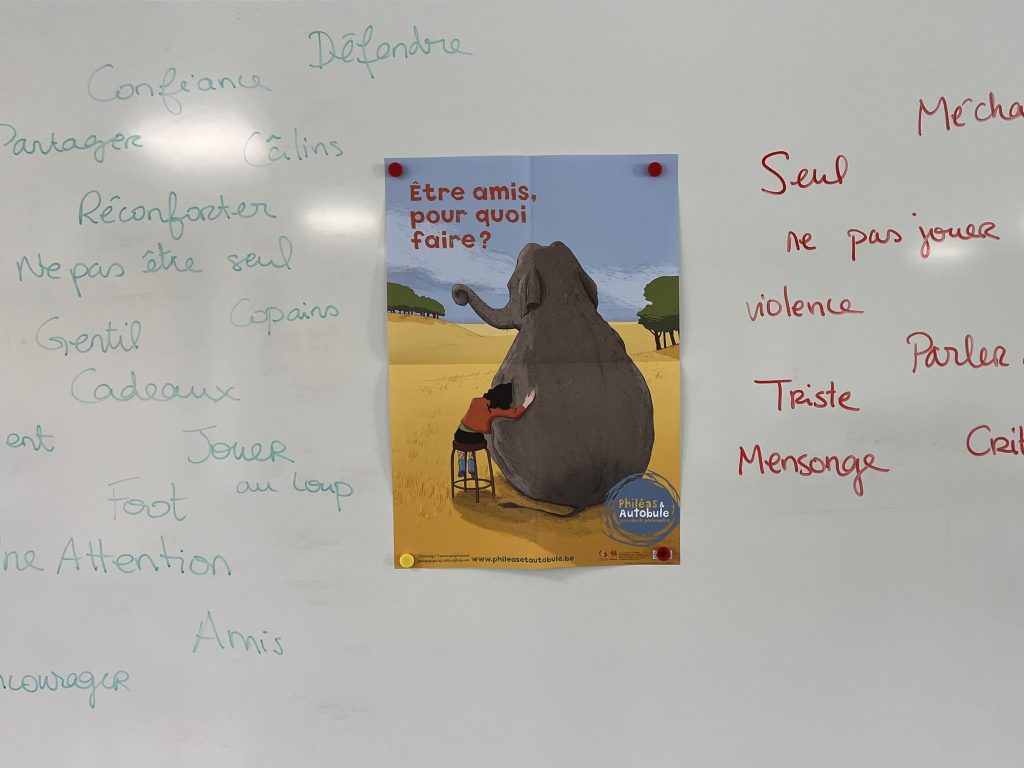 Défendre
Confiance
Partager
Câlins
Réconforter
Ne pas être seul
Copains
Gentil
Cadeaux
Jouer
au loup
Foot
Attention
Amis
Être amis,
pour quoi
faire?
Philéas &
Autobule
www.phileasetautobule.be
Seul
ne pas jouer
violence
Parler
Triste
Mensonge